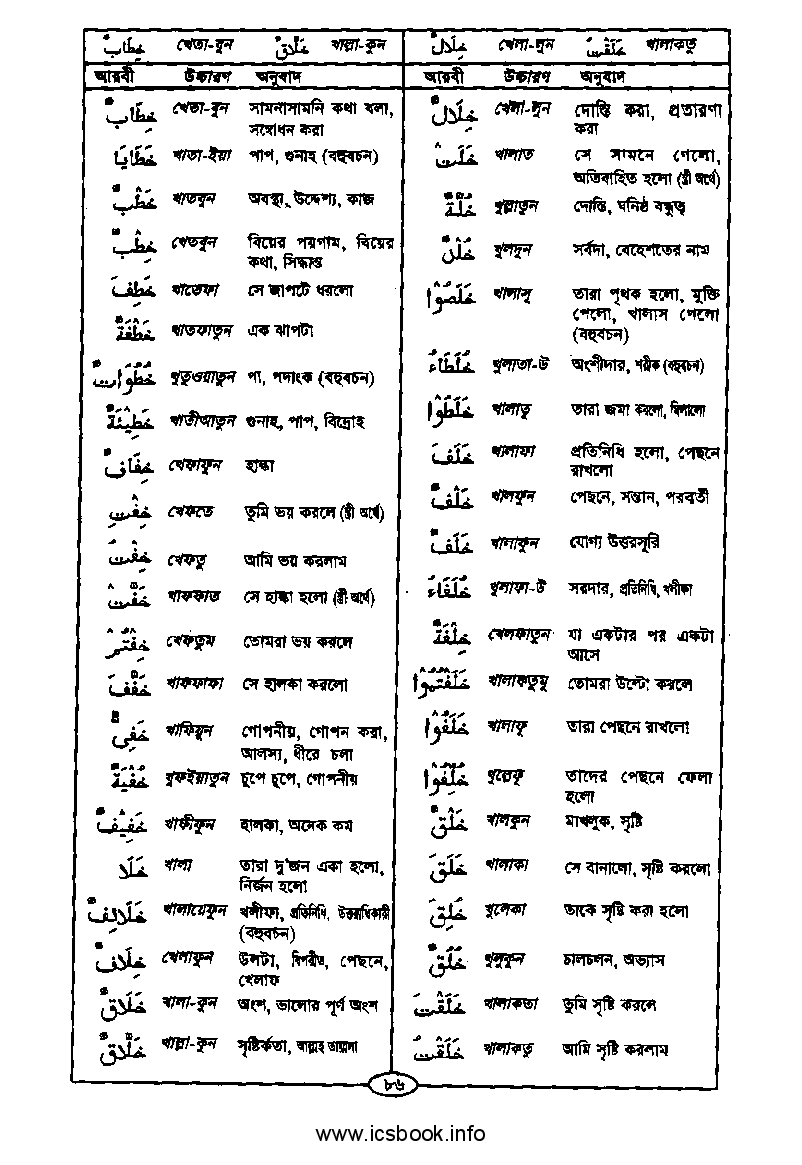 خِطَابٌ খেতা-বুন خَلَّاقٌ খাল্লা-কুন
আরবী উচ্চারণ অনুবাদ
خِطَابٌ খেতা-বুন সামনাসামনি কথা বলা,
সম্বোধন করা
خَطَايَا খাতা-ইয়া পাপ, গুনাহ (বহুবচন)
خَطْبٌ খাতবুন অবস্থা, উদ্দেশ্য, কাজ
خِطْبٌ খেতবুন বিয়ের পয়গাম, বিয়ের
কথা, সিদ্ধান্ত
خَطِفَ খাতেফা সে জাপটে ধরলো
خَطْفَةٌ খাতফাতুন এক ঝাপটা
خُطُوَاتٌ খুতুওয়াতুন পা, পদাংক (বহুবচন)
خَطِيْئَةٌ খাতীআতুন গুনাহ, পাপ, বিদ্রোহ
خِفَافٌ খেফাফুন হাল্কা
خِفْتِ খেফতে তুমি ভয় করলে (স্ত্রী অর্থে)
خِفْتُ খেফতু আমি ভয় করলাম
خَفَّتْ খাফফাত সে হাল্কা হলো (স্ত্রী অর্থে)
خِفْتُمْ খেফতুম তোমরা ভয় করলে
خَفَّفَ খাফফাফা সে হালকা করলো
خَفِىٌّ খাফিয়ুন গোপনীয়, গোপন করা,
আলস্য, ধীরে চলা
خُفْيَةٌ খুফইয়াতুন চুপে চুপে, গোপনীয়
خَفِيْفٌ খাফীফুন হালকা, অনেক কম
خَلَا খালা তারা দু'জন একা হলো,
নির্জন হলো
خَلَائِفُ খালায়েফুন খলীফা, প্রতিনিধি, উত্তরাধিকারী
(বহুবচন)
خِلَافٌ খেলাফুন উলটা, বিপরীত, পেছনে,
খেলাফ
خَلَاقٌ খালা-কুন অংশ, ভালোর পূর্ণ অংশ
خَلَّاقٌ খাল্লা-কুন সৃষ্টির্কতা, আল্লাহ তায়ালা
خِلَالٌ খেলা-লুন خَلَقْتُ খালাকতু
আরবী উচ্চারণ অনুবাদ
خِلَالٌ খেলা-লুন দোস্তি করা, প্রতারণা
করা
خَلَتْ খালাত সে সামনে গেলো,
অতিবাহিত হলো (স্ত্রী অর্থে)
خُلَّةٌ খুল্লাতুন দোস্তি, ঘনিষ্ঠ বন্ধুত্ব
خُلْدٌ খুলদুন সর্বদা, বেহেশতের নাম
خَلَصُوْا খালাসূ তারা পৃথক হলো, মুক্তি
পেলো, খালাস পেলো
(বহুবচন)
خُلَطَاءُ খুলাতা-উ অংশীদার, শরীক (বহুবচন)
خَلَطُوْا খালাতু তারা জমা করলো, মিলালো
خَلَفَ খালাফা প্রতিনিধি হলো, পেছনে
রাখলো
خَلْفٌ খালফুন পেছনে, সন্তান, পরবর্তী
خَلَفٌ খালাফুন যোগ্য উত্তরসূরি
خُلَفَاءُ খুলাফা-উ সরদার, প্রতিনিধি, খলীফা
خِلْفَةٌ খেলফাতুন যা একটার পর একটা
আসে
خَلَفْتُمُوْا খালাফতুমু তোমরা উল্টো করলে
خَلَفُوْا খালাফু তারা পেছনে রাখলো
خُلِّفُوْا খুল্লেফু তাদের পেছনে ফেলা
হলো
خَلْقٌ খালকুন মাখলুক, সৃষ্টি
خَلَقَ খালাকা সে বানালো, সৃষ্টি করলো
خُلِقَ খুলেকা তাকে সৃষ্টি করা হলো
خُلُقٌ খুলুকুন চালচলন, অভ্যাস
خَلَقْتَ খালাকতা তুমি সৃষ্টি করলে
خَلَقْتُ খালাকতু আমি সৃষ্টি করলাম
৮৬
www.icsbook.info